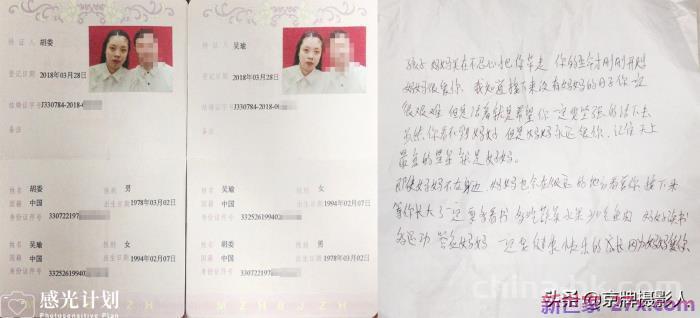 持证人 胡委
登记日期 2018年03月28日
结婚证字号 J330784-2018-0
备注
姓名 胡委 性别 男
国籍 中国 出生日期 1978年03月02日
身份证件号 330722197
姓名 吴瑜 性别 女
国籍 中国 出生日期 1994年02月07日
身份证件号 33252619940
持证人 吴瑜
登记日期 2018年03月28日
结婚证字号 J330784-2018-0
备注
姓名 吴瑜 性别 女
国籍 中国 出生日期 1994年02月07日
身份证件号 33252619940
姓名 胡委 性别 男
国籍 中国 出生日期 1978年03月02日
身份证件号 330722197
孩子 妈妈实在不忍心把你带走 你的生命刚刚开始
妈妈很爱你 我知道接下来没有妈妈的日子你一定
很艰难 但是活着就是希望 你一定要坚强的活下去
虽然你看不到妈妈 但是妈妈永远爱你 记住天上
最亮的星星就是妈妈
即使妈妈不在身边 妈妈也会在很远的地方看着你 接下来
等你长大了一定要多看书 多吃蔬菜水果 少吃鱼肉 好好读书
多运动 答应妈妈 一定会健康快乐的成长 因为妈妈爱你
感光计划
Photosensitive Plan
头条@京牌摄影人
新世家
21rx.com